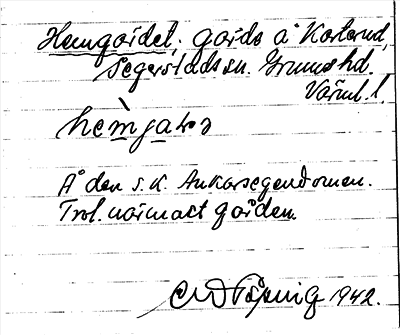 Hemgärdet, gärde å Karterud,
Segerstads sn. Grums hd.
Värml. l.
hèmjaɫə
Å den s.k. Ankarsegendomen.
Trol. närmast gården.
1942.